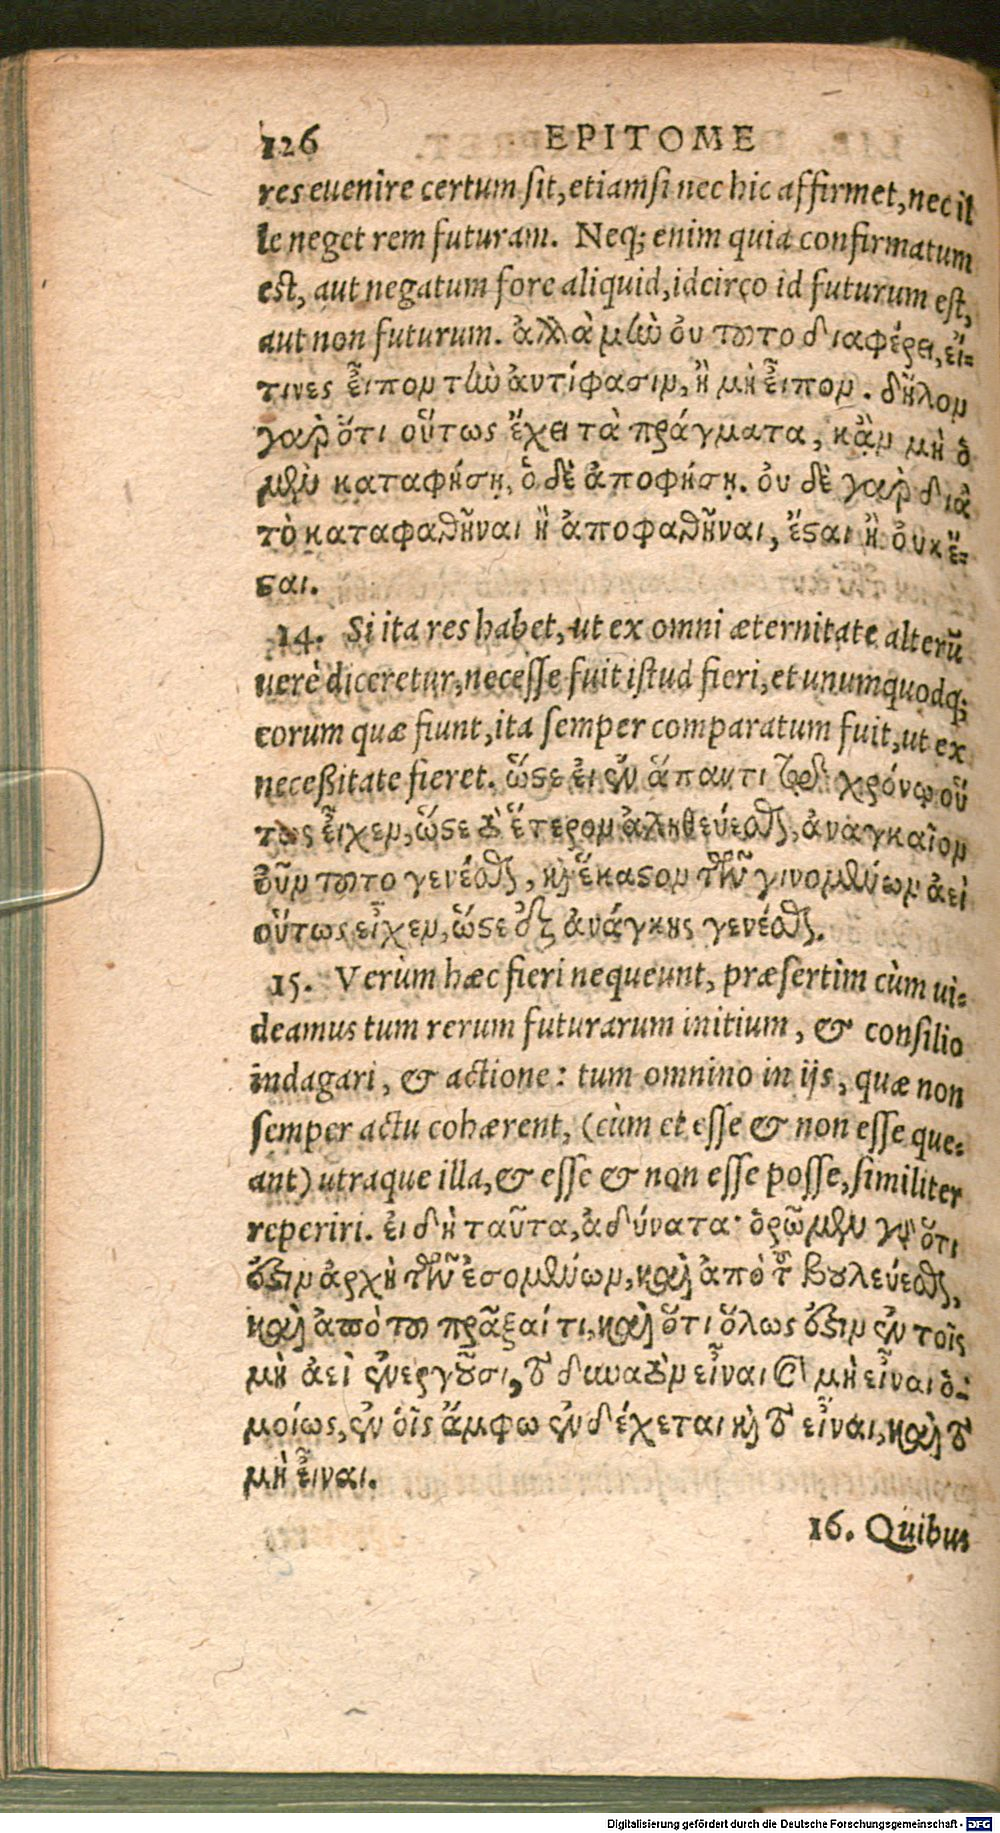 126 EPITOME
res euenire certum sit, etiamsi nec hic affirmet, nec il
le neget rem futuram. Neq; enim quia confirmatum
est, aut negatum fore aliquid, idcirco id futurum est,
aut non futurum. ἀλλὰ μὴν οὐ τοῦτο διαφέρει, εἴ-
τινες εἶπον τὴν ἀντίφασιν, ἢ μὴ εἶπον. δῆλον
γὰρ ὅτι οὕτως ἔχει τὰ πράγματα, κἂν μὴ ὁ
μὲν καταφήσῃ, ὁ δὲ ἀποφήσῃ. οὐ δὲ γὰρ διὰ
τὸ καταφαθῆναι ἢ ἀποφαθῆναι, ἔσαι ἢ οὐκ ἔ-
σαι.
14. Si ita res habet, ut ex omni æternitate alterū
uerè diceretur, necesse fuit istud fieri, et unumquodq;
eorum quæ fiunt, ita semper comparatum fuit, ut ex
necessitate fieret. ὥστε εἰ ἐν ἅπαντι τῷ χρόνῳ οὕ
τως εἶχεν, ὥστε τὸ ἕτερον ἀληθεύεσθαι, ἀναγκαῖον
οὖν τοῦτο γενέσθαι, καὶ ἕκαστον τῶν γινομένων ἀεὶ
οὕτως εἶχεν, ὥστε ἐξ ἀνάγκης γενέσθαι.
15. Verùm hæc fieri nequeunt, præsertim cùm ui-
deamus tum rerum futurarum initium, & consilio
indagari, & actione: tum omnino in ijs, quæ non
semper actu cohærent, (cùm et esse & non esse que-
ant) utraque illa, & esse & non esse posse, similiter
reperiri. εἰ δὴ ταῦτα, ἀδύνατα· ὁρῶμεν γὰρ ὅτι
ἔστιν ἀρχὴ τῶν ἐσομένων, καὶ ἀπὸ τοῦ βουλεύεσθαι,
καὶ ἀπὸ τοῦ πρᾶξαί τι, καὶ ὅτι ὅλως ἔστιν ἐν τοῖς
μὴ ἀεὶ ἐνεργοῦσι, τὸ δυνατὸν εἶναι καὶ μὴ εἶναι ὁ-
μοίως, ἐν οἷς ἄμφω ἐνδέχεται καὶ τὸ εἶναι, καὶ τὸ
μὴ εἶναι.
16. Quibus
Digitalisierung gefördert durch die Deutsche Forschungsgemeinschaft - DFG